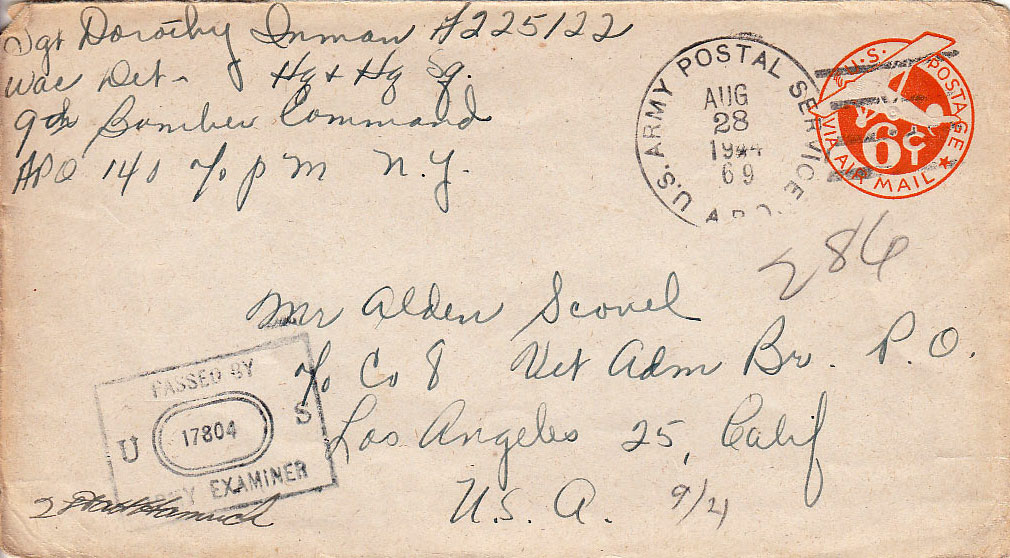 Sgt Dorothy Inman A225122
Wac Det - Hq & Hq Sq.
9th Bomber Command
APO 140 c/o P M N.Y.
U.S. ARMY POSTAL SERVICE
AUG
28
1944
69
A.P.O.
U.S. POSTAGE
6¢
VIA AIR MAIL
286
Mr Alden Scovel
c/o Co 8 Vet Adm Br. P.O.
Los Angeles 25, Calif
U.S.A. 9/4
PASSED BY
U 17804 S
ARMY EXAMINER